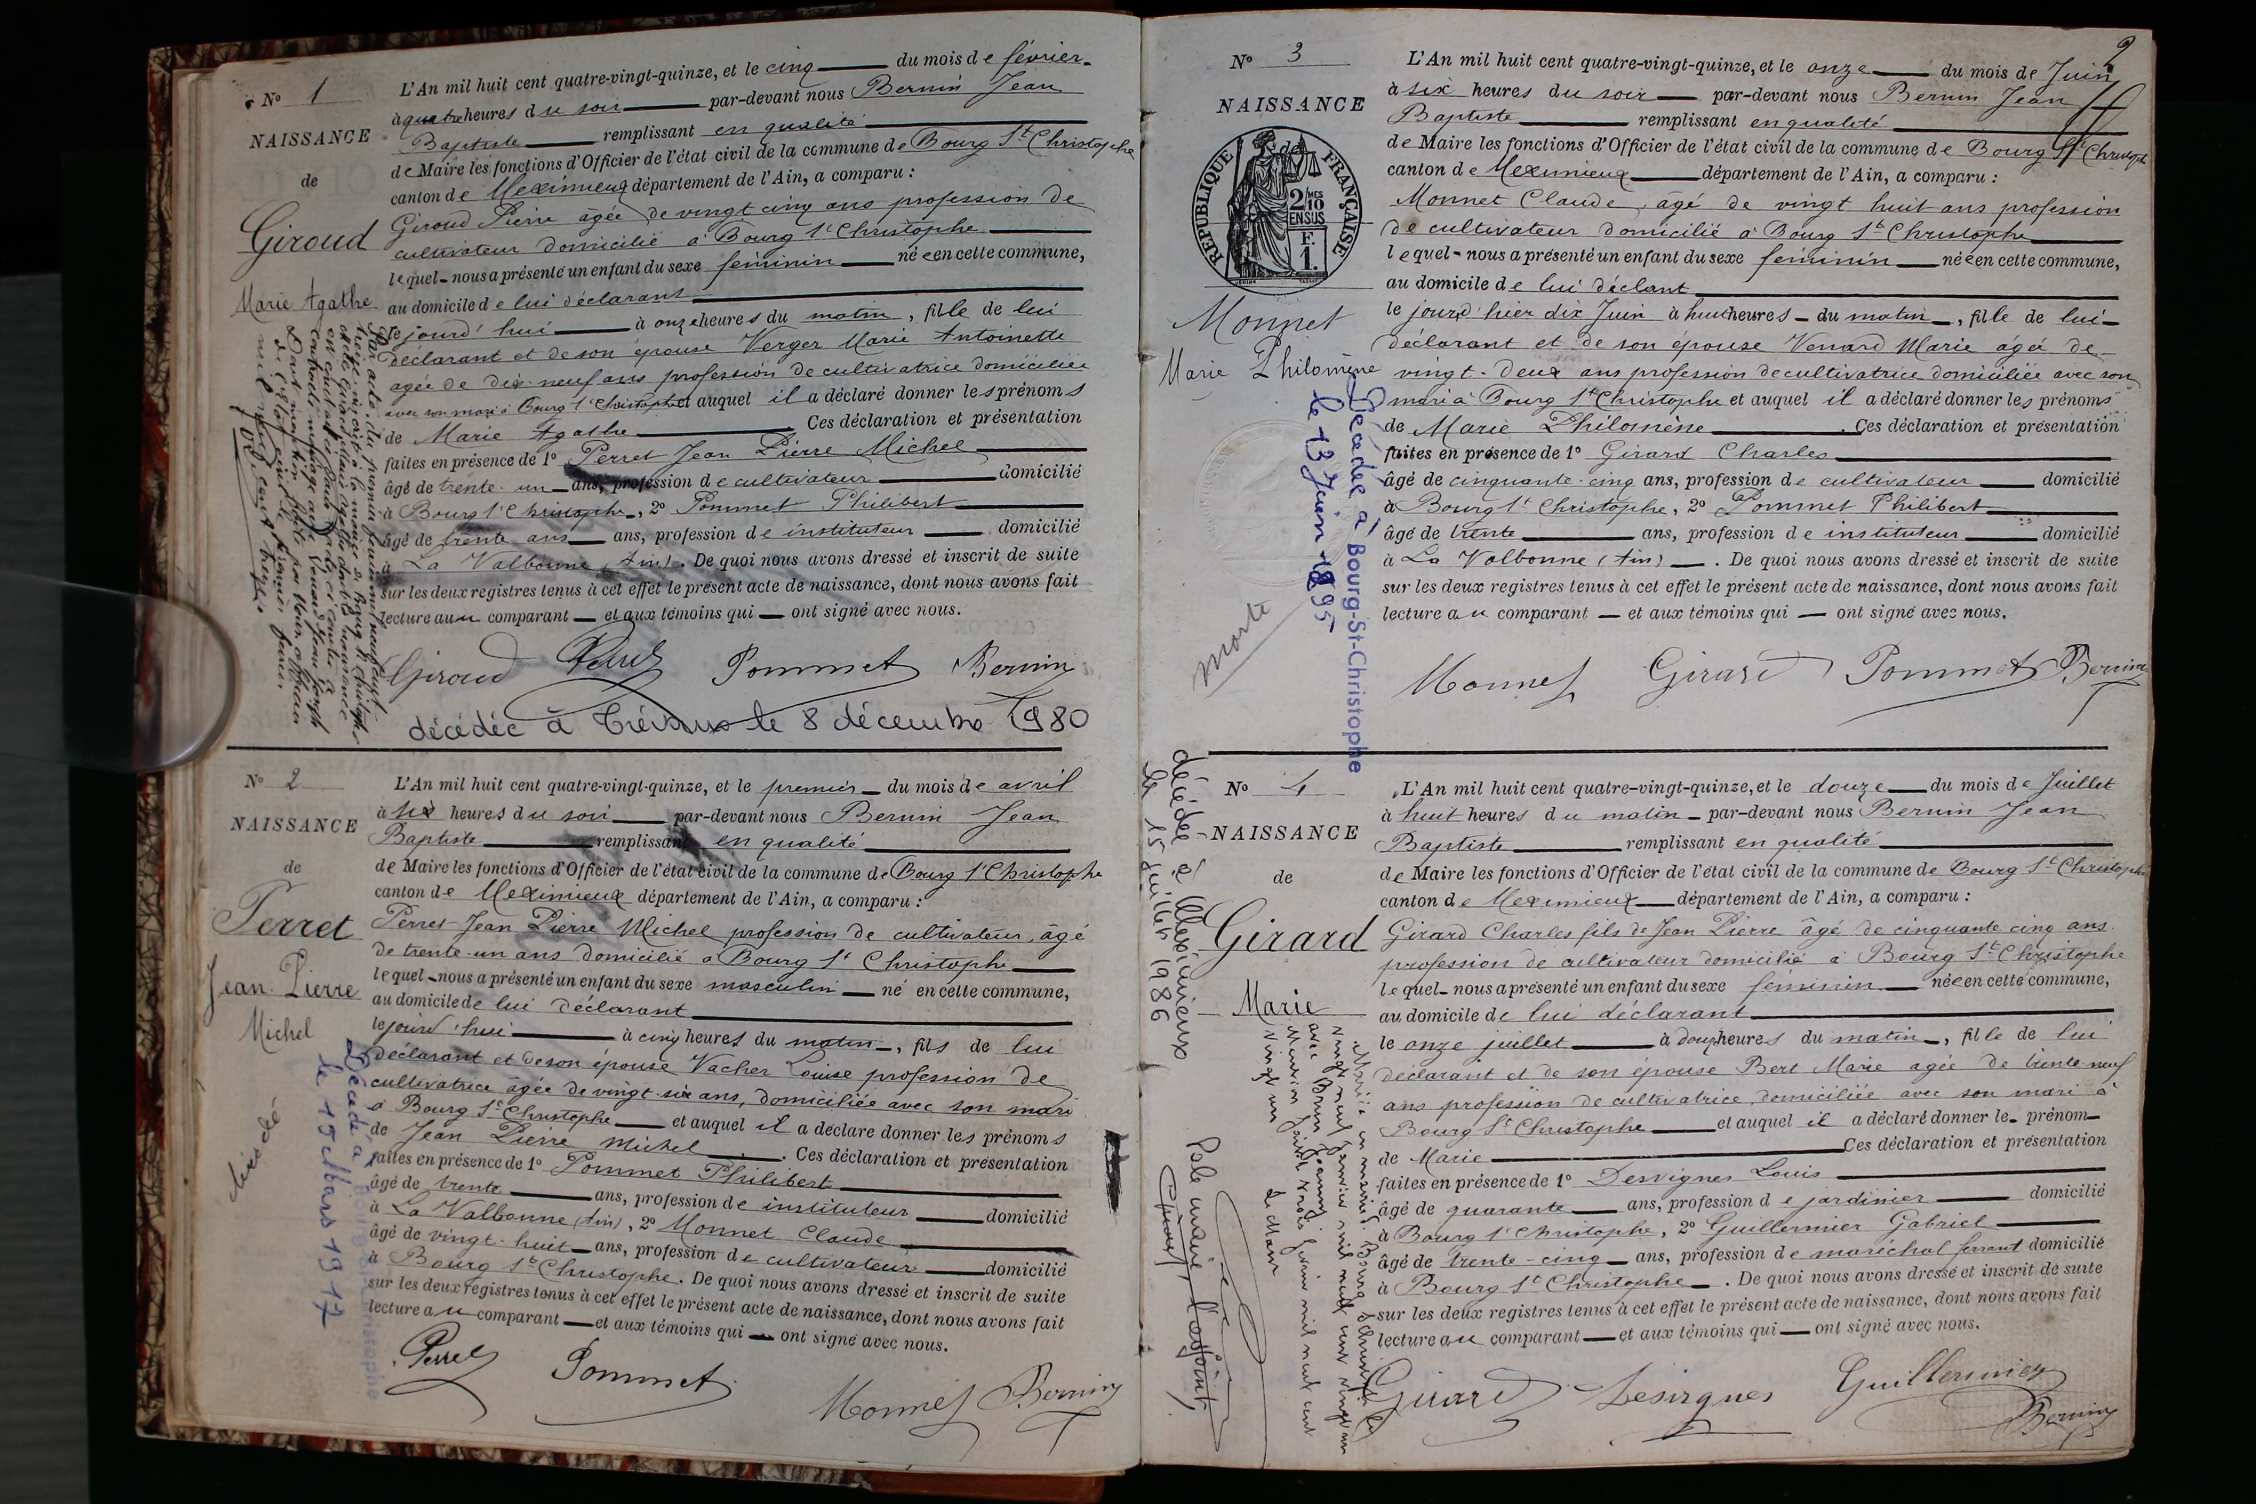 N° 1
NAISSANCE
de
Giroud
Marie Agathe
L'An mil huit cent quatre-vingt-quinze, et le cinq du mois de février
à quatre heures du soir par-devant nous Bernin Jean
Baptiste remplissant en qualité
de Maire les fonctions d'Officier de l'état civil de la commune de Bourg St Christophe
canton de Meximieux département de l'Ain, a comparu :
Giroud Pierre âgée de vingt cinq ans profession de
cultivateur domicilié à Bourg St Christophe
lequel nous a présenté un enfant du sexe féminin née en cette commune,
au domicile de lui déclarant
le jourd'hui à onze heures du matin, fille de lui
déclarant et de son épouse Verger Marie Antoinette
agée de dix-neuf ans profession de cultivatrice domiciliée
avec son mari à Bourg St Christophe et auquel il a déclaré donner les prénoms
de Marie Agathe Ces déclaration et présentation
faites en présence de 1° Perret Jean Pierre Michel
âgé de trente-un ans, profession de cultivateur domicilié
à Bourg St Christophe, 2° Pommet Philibert
âgé de trente ans ans, profession de instituteur domicilié
à La Valbonne (Ain). De quoi nous avons dressé et inscrit de suite
sur les deux registres tenus à cet effet le présent acte de naissance, dont nous avons fait
lecture au comparant et aux témoins qui ont signé avec nous.
Giroud Perret Pommet Bernin
décédée à Trévoux le 8 décembre 1980
N° 2
NAISSANCE
de
Perret
Jean Pierre
Michel
décédé
Décédé à Bourg-St-Christophe
le 15 Mars 1917
L'An mil huit cent quatre-vingt-quinze, et le premier du mois de avril
à six heures du soir par-devant nous Bernin Jean
Baptiste remplissant en qualité
de Maire les fonctions d'Officier de l'état civil de la commune de Bourg St Christophe
canton de Meximieux département de l'Ain, a comparu :
Perret Jean Pierre Michel profession de cultivateur, âgé
de trente-un ans domicilié à Bourg St Christophe
lequel nous a présenté un enfant du sexe masculin né en cette commune,
au domicile de lui déclarant
le jourd'hui à cinq heures du matin, fils de lui
déclarant et de son épouse Vacher Louise profession de
cultivatrice âgée de vingt-six ans, domiciliée avec son mari
à Bourg St Christophe et auquel il a déclaré donner les prénoms
de Jean Pierre Michel. Ces déclaration et présentation
faites en présence de 1° Pommet Philibert
âgé de trente ans, profession de instituteur domicilié
à La Valbonne (Ain), 2° Monnet Claude
âgé de vingt-huit ans, profession de cultivateur domicilié
à Bourg St Christophe. De quoi nous avons dressé et inscrit de suite
sur les deux registres tenus à cet effet le présent acte de naissance, dont nous avons fait
lecture au comparant et aux témoins qui ont signé avec nous.
Perret Pommet Monnet Bernin
2
N° 3
NAISSANCE
REPUBLIQUE FRANÇAISE
2/10 MES EN SUS
F. 1.
Monnet
Marie Philomène
Décédée à Bourg-St-Christophe
le 13 Juin 1895
morte
L'An mil huit cent quatre-vingt-quinze, et le onze du mois de Juin
à six heures du soir par-devant nous Bernin Jean
Baptiste remplissant en qualité
de Maire les fonctions d'Officier de l'état civil de la commune de Bourg St Christophe
canton de Meximieux département de l'Ain, a comparu :
Monnet Claude, âgé de vingt huit ans profession
de cultivateur domicilié à Bourg St Christophe
lequel nous a présenté un enfant du sexe féminin née en cette commune,
au domicile de lui déclant
le jourd'hier dix Juin à huit heures du matin, fille de lui
déclarant et de son épouse Venard Marie âgée de
vingt-deux ans profession de cultivatrice domiciliée avec son
mari à Bourg St Christophe et auquel il a déclaré donner les prénoms
de Marie Philomène. Ces déclaration et présentation
faites en présence de 1° Girard Charles
âgé de cinquante-cinq ans, profession de cultivateur domicilié
à Bourg St Christophe, 2° Pommet Philibert
âgé de trente ans, profession de instituteur domicilié
à La Valbonne (Ain). De quoi nous avons dressé et inscrit de suite
sur les deux registres tenus à cet effet le présent acte de naissance, dont nous avons fait
lecture au comparant et aux témoins qui ont signé avec nous.
Monnet Girard Pommet Bernin
N° 4
NAISSANCE
de
Girard
Marie
décédée à Meximieux
le 15 juillet 1986
L'An mil huit cent quatre-vingt-quinze, et le douze du mois de Juillet
à huit heures du matin par-devant nous Bernin Jean
Baptiste remplissant en qualité
de Maire les fonctions d'Officier de l'état civil de la commune de Bourg St Christophe
canton de Meximieux département de l'Ain, a comparu :
Girard Charles fils de Jean Pierre âgé de cinquante cinq ans
profession de cultivateur domicilié à Bourg St Christophe
lequel nous a présenté un enfant du sexe féminin née en cette commune,
au domicile de lui déclarant
le onze juillet à douze heures du matin, fille de lui
déclarant et de son épouse Bert Marie agée de trente-neuf
ans profession de cultivatrice, domiciliée avec son mari à
Bourg St Christophe et auquel il a déclaré donner le prénom
de Marie Ces déclaration et présentation
faites en présence de 1° Desvignes Louis
âgé de quarante ans, profession de jardinier domicilié
à Bourg St Christophe, 2° Guillermier Gabriel
âgé de trente-cinq ans, profession de maréchal ferrant domicilié
à Bourg St Christophe. De quoi nous avons dressé et inscrit de suite
sur les deux registres tenus à cet effet le présent acte de naissance, dont nous avons fait
lecture au comparant et aux témoins qui ont signé avec nous.
Girard Desvignes Guillermier
Bernin